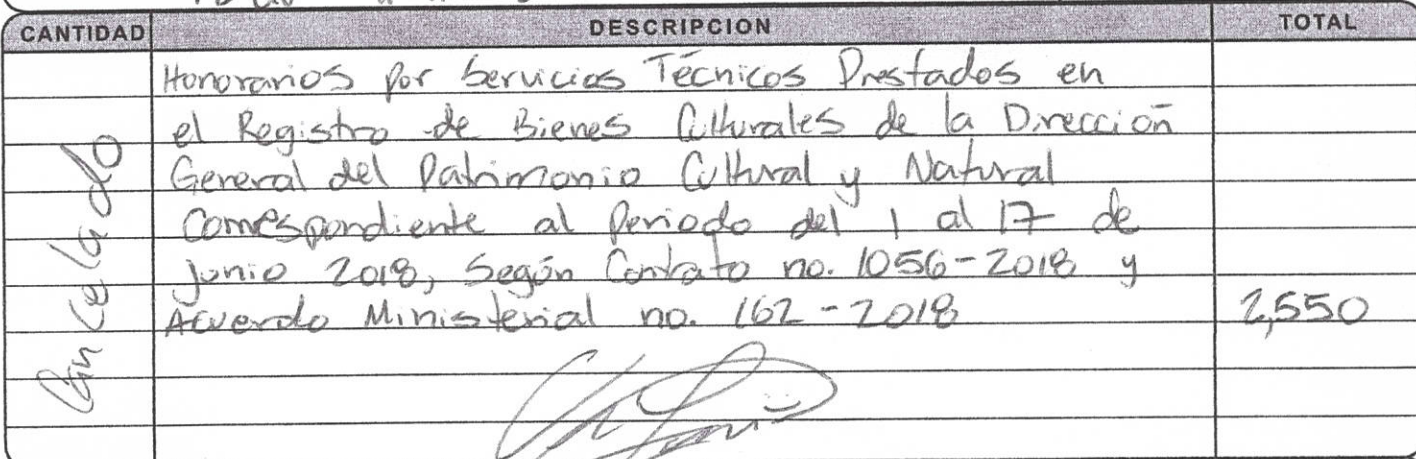 CANTIDAD DESCRIPCION TOTAL
Honorarios por Servicios Técnicos Prestados en
el Registro de Bienes Culturales de la Dirección
General del Patrimonio Cultural y Natural
Correspondiente al Periodo del 1 al 17 de
junio 2018, Según Contrato no. 1056-2018 y
Acuerdo Ministerial no. 162-2018 2,550
Cancelado